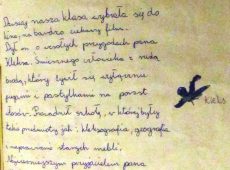 Dzisiaj nasza klasa wybrała się do
kina, na bardzo ciekawy film.
Był on o wesołych przygodach pana
Kleksa. Śmiesznego człowieka z rudą
brodą, który żywił się wyłącznie
piegami i pastylkami na porost
włosów. Prowadził szkołę, w której były
takie przedmioty jak: kleksografia, geografia
i naprawianie starych mebli.
Najwierniejszym przyjacielem pana
kleks